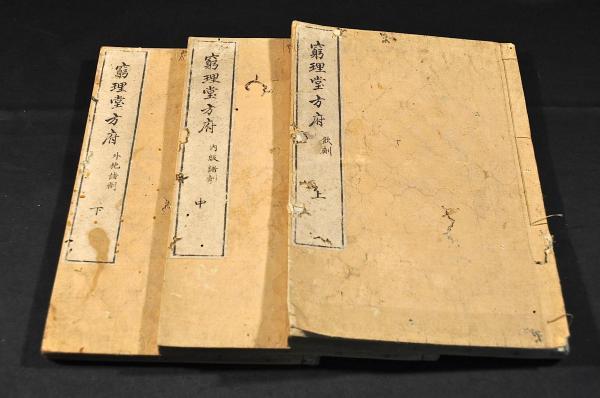 窮理堂方府 飲劑 上
窮理堂方府 內服諸劑 中
窮理堂方府 外施諸劑 下